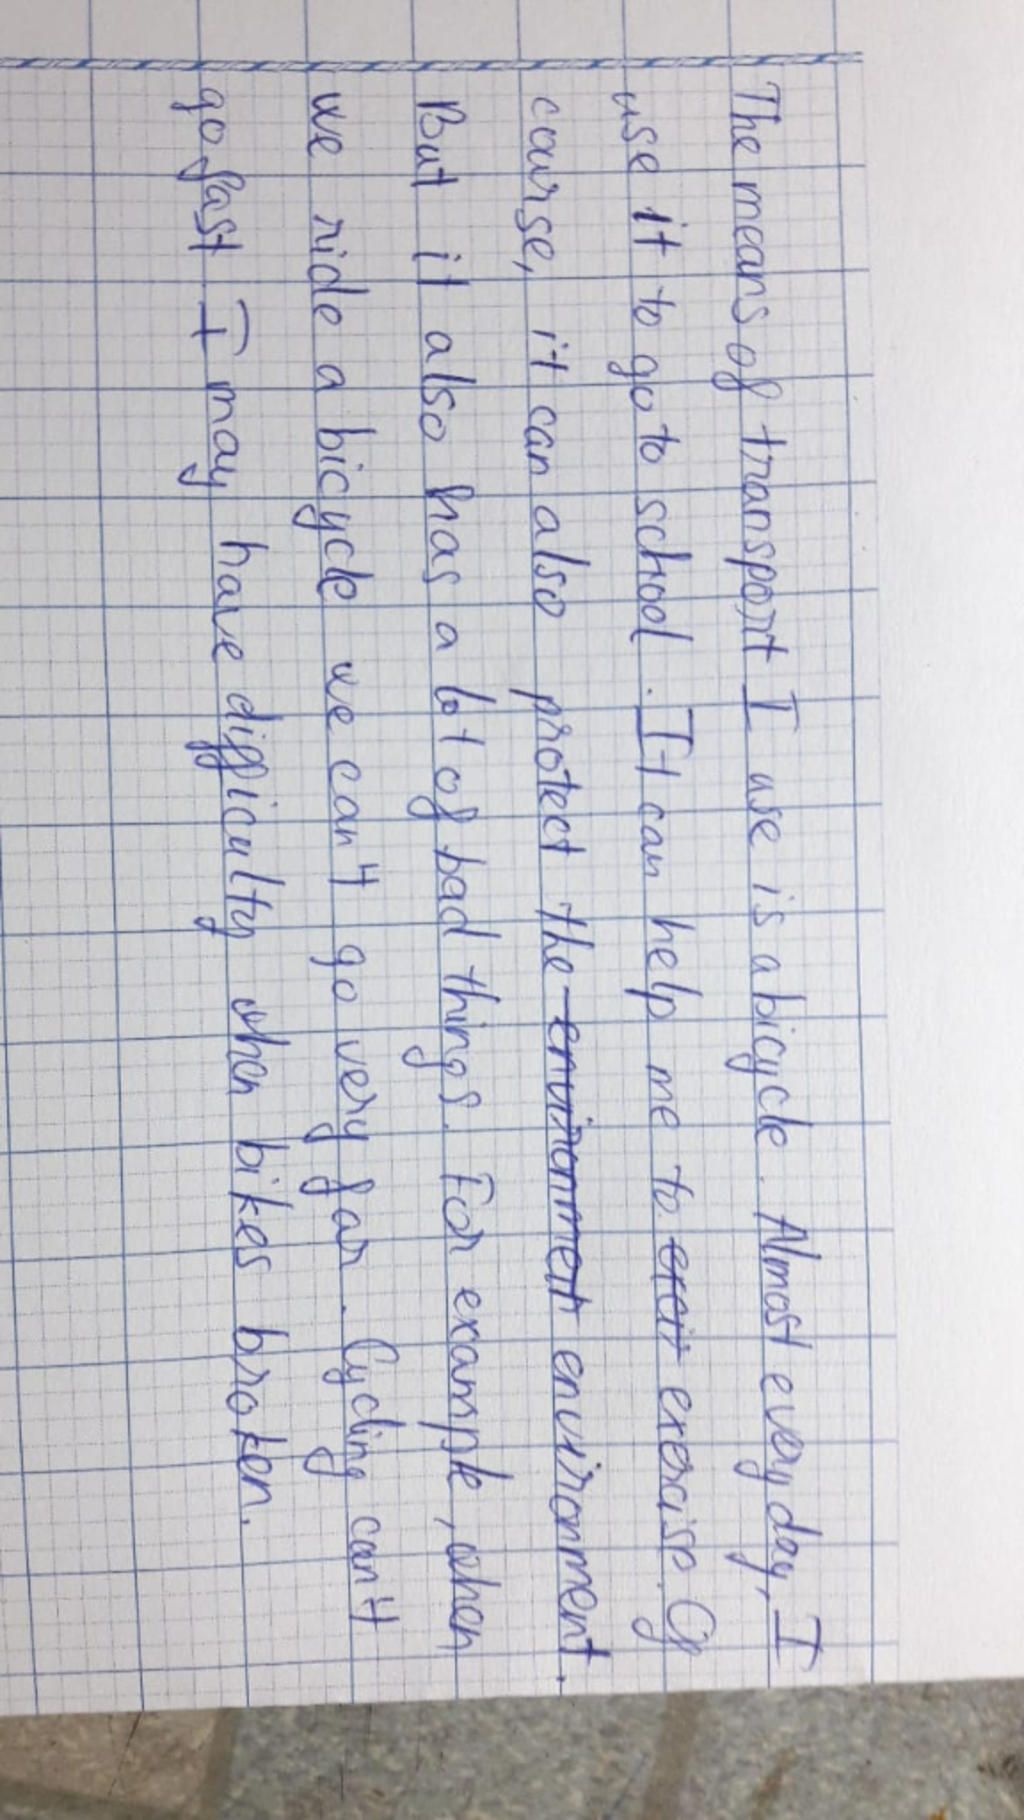 The means of transport I use is a bicycle. Almost every day, I
use it to go to school. It can help me to exercise. Of
course, it can also protect the environment environment.
But it also has a lot of bad things. For example, when
we ride a bicycle we can't go very far. Cycling can't
go fast I may have difficulty when bikes broken.